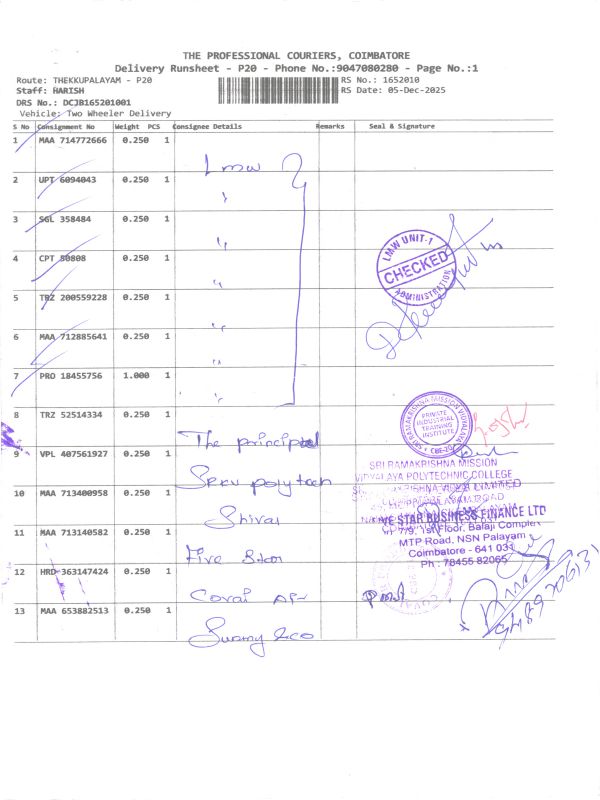 THE PROFESSIONAL COURIERS, COIMBATORE
Delivery Runsheet - P20 - Phone No.:9047080280 - Page No.:1
Route: THEKKUPALAYAM - P20 RS No.: 1652010
Staff: HARISH RS Date: 05-Dec-2025
DRS No.: DCJB165201001
Vehicle: Two Wheeler Delivery
S No Consignment No Weight PCS Consignee Details Remarks Seal & Signature
1 MAA 714772666 0.250 1 Lmw
2 UPT 6094043 0.250 1 "
3 SGL 358484 0.250 1 "
LMW UNIT-1
CHECKED
ADMINISTRATION
4 CPT 50808 0.250 1 "
5 TRZ 200559228 0.250 1 "
6 MAA 712885641 0.250 1 "
7 PRO 18455756 1.000 1
8 TRZ 52514334 0.250 1 The principal
SRI RAMAKRISHNA MISSION VIDYALAYA
PRIVATE
INDUSTRIAL
TRAINING
INSTITUTE
9 VPL 407561927 0.250 1 polytech
SRI RAMAKRISHNA MISSION
VIDYALAYA POLYTECHNIC COLLEGE
10 MAA 713400958 0.250 1
11 MAA 713140582 0.250 1 Five Star
STAR BUSINESS FINANCE LTD
7/9, 1st Floor, Balaji Complex
MTP Road, NSN Palayam
Coimbatore - 641 031
Ph : 78455 82065
12 HRD 363147424 0.250 1 Covai
13 MAA 653882513 0.250 1 Sunmy &co